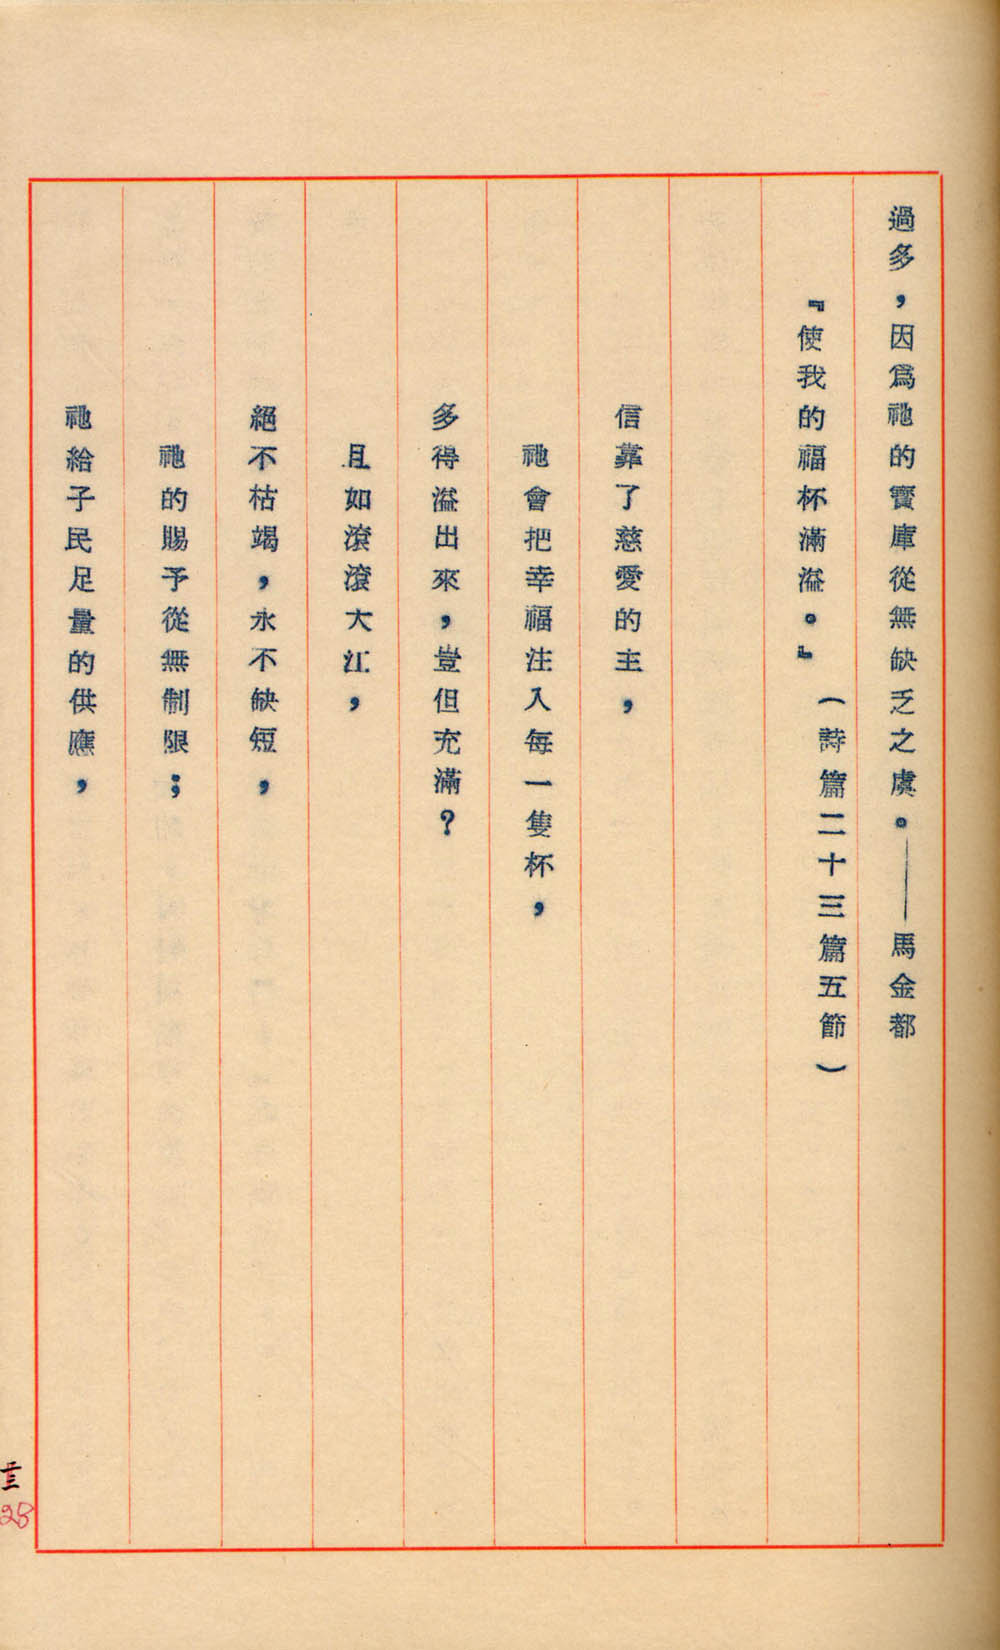 過多，因爲祂的寶庫從無缺乏之虞。——馬金都
『使我的福杯滿溢。』（詩篇二十三篇五節）
信靠了慈愛的主，
祂會把幸福注入每一隻杯，
多得溢出來，豈但充滿？
且如滾滾大江，
絕不枯竭，永不缺短，
祂的賜予從無制限；
祂給子民足量的供應，
廿三
28